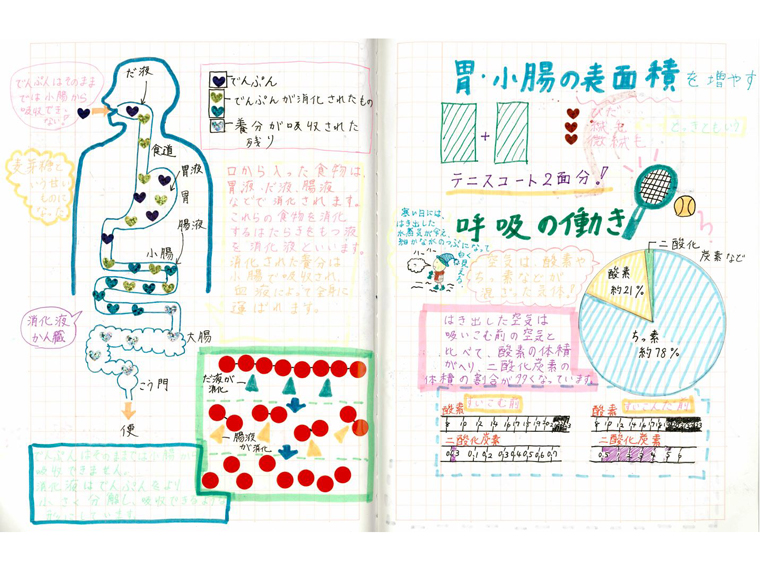 でんぷんはそのまま
では小腸から
吸収できない
だ液
食道
胃液
胃
腸液
小腸
大腸
こう門
便
消化液
かん臓
でんぷん
でんぷんが消化されたもの
養分が吸収された
残り
口から入った食物は、
胃液・だ液、腸液
などで消化されます。
これらの食物を消化
するはたらきをもつ液
を消化液といいます。
消化された養分は
小腸で吸収され、
血液によって全身
運ばれます。
だ液が
消化
腸液
が消化
でんぷんはそのままでは小腸から
吸収できません。
消化液はでんぷんをより
小さく分解し、吸収できるような
形にしています。
胃・小腸の表面積を増やす
テニスコート2面分!
呼吸の働き
寒い日には、
はき出した
水蒸気が冷え、
細かなつぶになって
白く見える
空気は、酸素や
ちっ素などが
混ざった気体!
二酸化
炭素など
酸素
約21%
ちっ素
約78%
はき出した空気は
吸いこむ前の空気と
比べて、酸素の体積
がへり、二酸化炭素の
体積の割合が多くなっています。
酸素
吸いこむ前
二酸化炭素
酸素
二酸化炭素